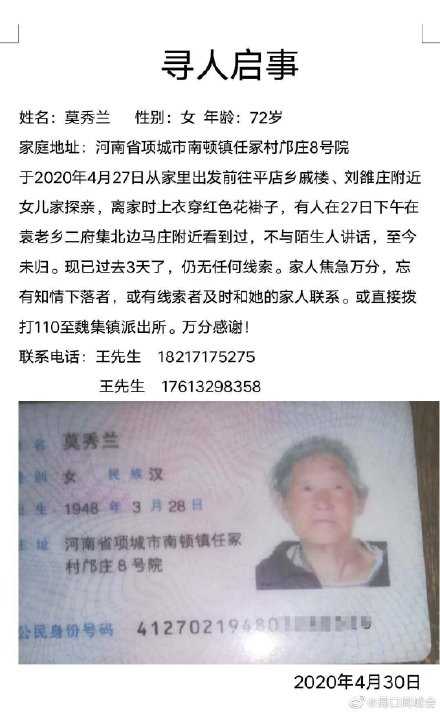 寻人启事
姓名：莫秀兰 性别：女 年龄：72岁
家庭地址：河南省项城市南顿镇任冢村邝庄8号院
于2020年4月27日从家里出发前往平店乡戚楼、刘雒庄附近
女儿家探亲，离家时上衣穿红色花褂子，有人在27日下午在
袁老乡二府集北边马庄附近看到过，不与陌生人讲话，至今
未归。现已过去3天了，仍无任何线索。家人焦急万分，忘
有知情下落者，或有线索者及时和她的家人联系。或直接拨
打110至魏集镇派出所。万分感谢！
联系电话：王先生 18217175275
王先生 17613298358
名 莫秀兰
别 女 民族 汉
生 1948 年 3 月 28 日
址 河南省项城市南顿镇任冢
村邝庄8号院
公民身份号码 41270219480
2020年4月30日
@周口同城会